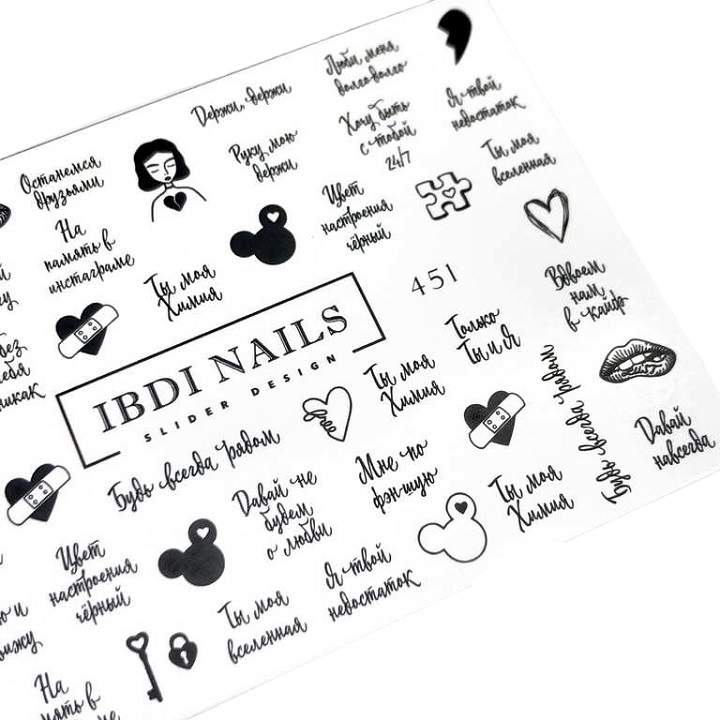 Люби меня
долго-долго
Держи, держи
Я твой
недостаток
Хочу быть
с тобой
24/7
Руку мою
держи
Останемся
друзьями
Ты моя
вселенная
Цвет
настроения
чёрный
На
память в
инстаграме
Ты моя
Химия
451
Вдвоем
нам
в кайф
Только
Ты и Я
без
себя
никак
IBDI NAILS
SLIDER DESIGN
Ты моя
Химия
Love
Будь всегда рядом
Давай
навсегда
Будь всегда рядом
Мне по
фэн-шую
Давай не
будем
о любви
Ты моя
Химия
Цвет
настроения
чёрный
Я твой
недостаток
Ты моя
вселенная
На
память в